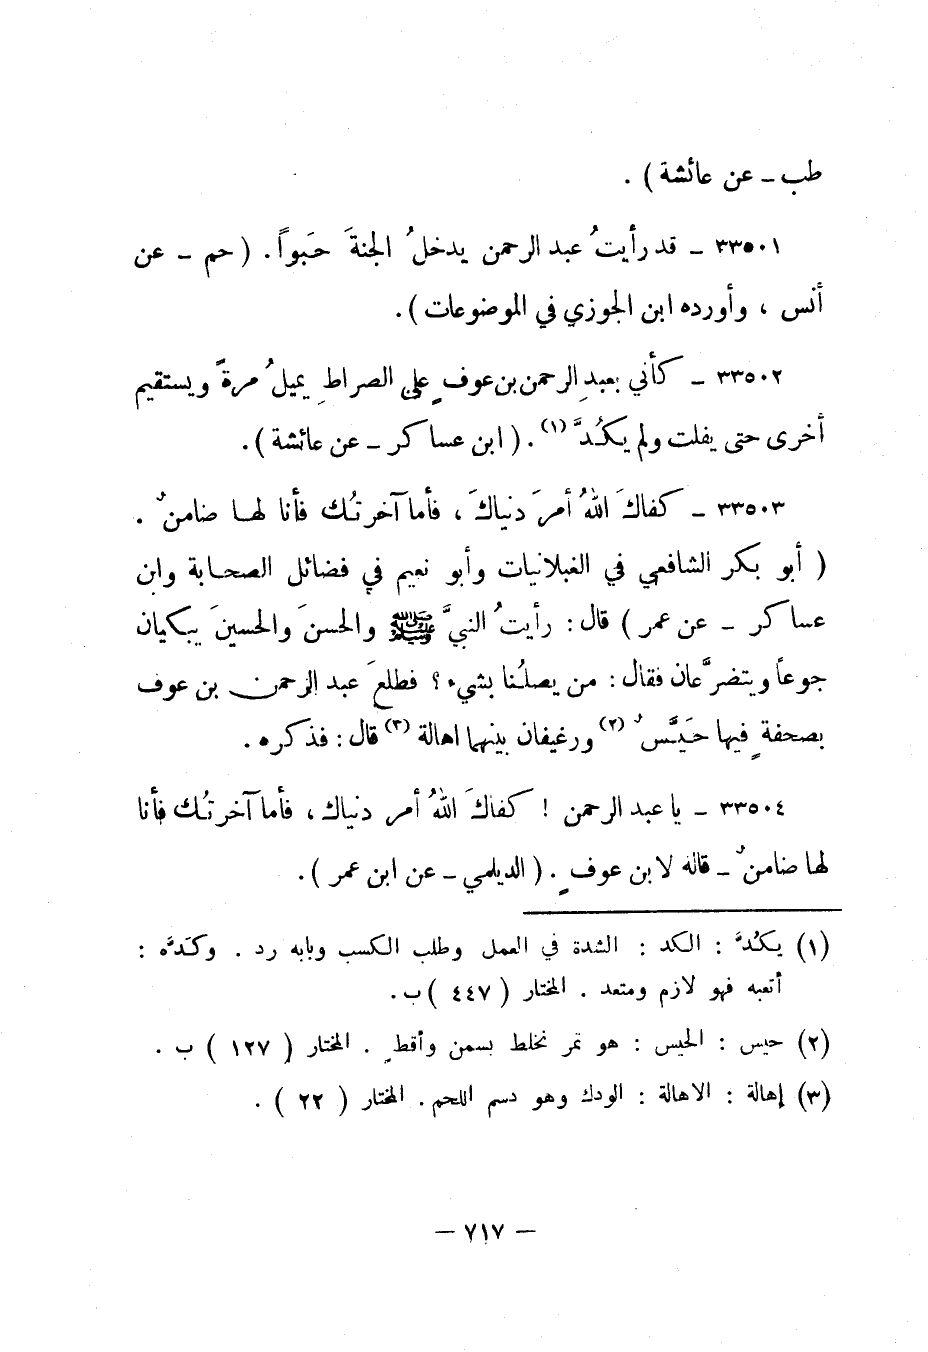 طب ـ عن عائشة ) .
٣٣٥٠١ ـ قد رأيتُ عبد الرحمن يدخلُ الجنةَ حَبواً . ( حم ـ عن
أنس ، وأورده ابن الجوزي في الموضوعات ) .
٣٣٥٠٢ ـ كأني بعبدِ الرحمن بن عوفٍ على الصراطِ يميلُ مرةً ويستقيم
أخرى حتى يفلت ولم يكُدَّ (١) . ( ابن عساكر ـ عن عائشة ) .
٣٣٥٠٣ ـ كفاكَ اللهُ أمرَ دنياكَ ، فأما آخرتُك فأنا لها ضامنٌ .
( أبو بكر الشافعي في الغيلانيات وأبو نعيم في فضائل الصحابة وابن
عساكر ـ عن عمر ) قال : رأيتُ النبيَّ ﷺ والحسنَ والحسينَ يبكيان
جوعاً ويتضرَّعان فقال : من يصلُنا بشيء ؟ فطلعَ عبد الرحمن بن عوف
بصحفةٍ فيها حَيَسٌ (٢) ورغيفان بينهما اهالة (٣) قال : فذكره .
٣٣٥٠٤ ـ يا عبد الرحمن ! كفاكَ اللهُ أمر دنياك ، فأما آخرتُك فأنا
لها ضامنٌ ـ قاله لابن عوفٍ . ( الديلمي ـ عن ابن عمر ) .
(١) يكُدَّ : الكد : الشدة في العمل وطلب الكسب وبابه رد . وكَدَّه :
أتعبه فهو لازم ومتعد . المختار ( ٤٤٧ ) ب .
(٢) حيس : الحيس : هو تمر يخلط بسمن وأقطٍ . المختار ( ١٢٧ ) ب .
(٣) إهالة : الاهالة : الودك وهو دسم اللحم . المختار ( ٢٢ ) .
— ٧١٧ —